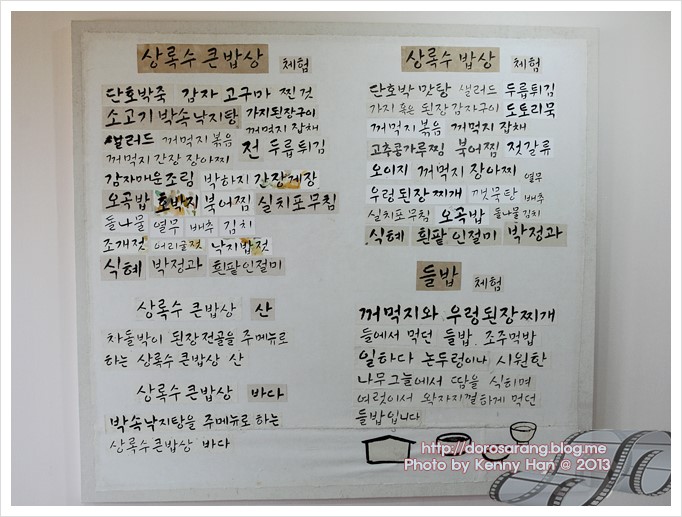 상록수 큰밥상 체험
단호박죽 감자 고구마 찐 것
소고기 박속낙지탕 가지된장구이
샐러드 꺼먹지볶음 꺼먹지 잡채
꺼먹지 간장 장아찌 전 두릅튀김
감자매운조림 박하지 간장게장
오곡밥 호박지 북어찜 실치포무침
돌나물 열무 배추 김치
조개젓 어리굴젓 낙지밥젓
식혜 박정과 흰팥인절미
상록수 큰밥상 산
차돌박이 된장전골을 주메뉴로
하는 상록수 큰밥상 산
상록수 큰밥상 바다
박속낙지탕을 주메뉴로 하는
상록수큰밥상 바다
상록수 밥상 체험
단호박 맛탕 샐러드 두릅튀김
가지 혹은 된장감자구이 도토리묵
꺼먹지 볶음 꺼먹지 잡채
고추콩가루찜 북어찜 젓갈류
오이지 꺼먹지 장아찌 열무
우렁된장찌개 깻묵탕 배추
실치포무침 오곡밥 돌나물 김치
식혜 흰팥 인절미 박정과
들밥 체험
꺼먹지와 우렁된장찌개
들에서 먹던 들밥. 조주먹밥
일하다 논두렁이나 시원한
나무그늘에서 땀을 식히며
여럿이서 왁자지껄하게 먹던
들밥입니다
http://dorosarang.blog.me
Photo by Kenny Han @ 2013